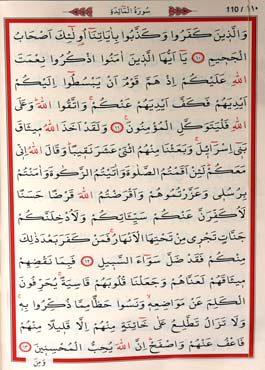 سُورَةُ الْمَائِدَةِ 110 / ١١٠
وَالَّذِينَ كَفَرُوا وَكَذَّبُوا بِاٰيَاتِنَا اُولٰٓئِكَ اَصْحَابُ
الْجَحِيمِ ﴿١٠﴾ يَٓا اَيُّهَا الَّذِينَ اٰمَنُوا اذْكُرُوا نِعْمَتَ
اللّٰهِ عَلَيْكُمْ اِذْ هَمَّ قَوْمٌ اَنْ يَبْسُطُٓوا اِلَيْكُمْ
اَيْدِيَهُمْ فَكَفَّ اَيْدِيَهُمْ عَنْكُمْ وَاتَّقُوا اللّٰهَ وَعَلَى
اللّٰهِ فَلْيَتَوَكَّلِ الْمُؤْمِنُونَ ﴿١١﴾ وَلَقَدْ اَخَذَ اللّٰهُ مِيثَاقَ
بَنِٓي اِسْرَٓائِيلَ وَبَعَثْنَا مِنْهُمُ اثْنَيْ عَشَرَ نَقِيبًا وَقَالَ اللّٰهُ اِنِّي
مَعَكُمْ لَئِنْ اَقَمْتُمُ الصَّلٰوةَ وَاٰتَيْتُمُ الزَّكٰوةَ وَاٰمَنْتُمْ
بِرُسُلِي وَعَزَّرْتُمُوهُمْ وَاَقْرَضْتُمُ اللّٰهَ قَرْضًا حَسَنًا
لَاُكَفِّرَنَّ عَنْكُمْ سَيِّاٰتِكُمْ وَلَاُدْخِلَنَّكُمْ
جَنَّاتٍ تَجْرِي مِنْ تَحْتِهَا الْاَنْهَارُ فَمَنْ كَفَرَ بَعْدَ ذٰلِكَ
مِنْكُمْ فَقَدْ ضَلَّ سَوَٓاءَ السَّبِيلِ ﴿١٢﴾ فَبِمَا نَقْضِهِمْ
مِيثَاقَهُمْ لَعَنَّاهُمْ وَجَعَلْنَا قُلُوبَهُمْ قَاسِيَةً يُحَرِّفُونَ
الْكَلِمَ عَنْ مَوَاضِعِهِ وَنَسُوا حَظًّا مِمَّا ذُكِّرُوا بِهِ
وَلَا تَزَالُ تَطَّلِعُ عَلٰى خَٓائِنَةٍ مِنْهُمْ اِلَّا قَلِيلًا مِنْهُمْ
فَاعْفُ عَنْهُمْ وَاصْفَحْ اِنَّ اللّٰهَ يُحِبُّ الْمُحْسِنِينَ ﴿١٣﴾
وَمِنَ